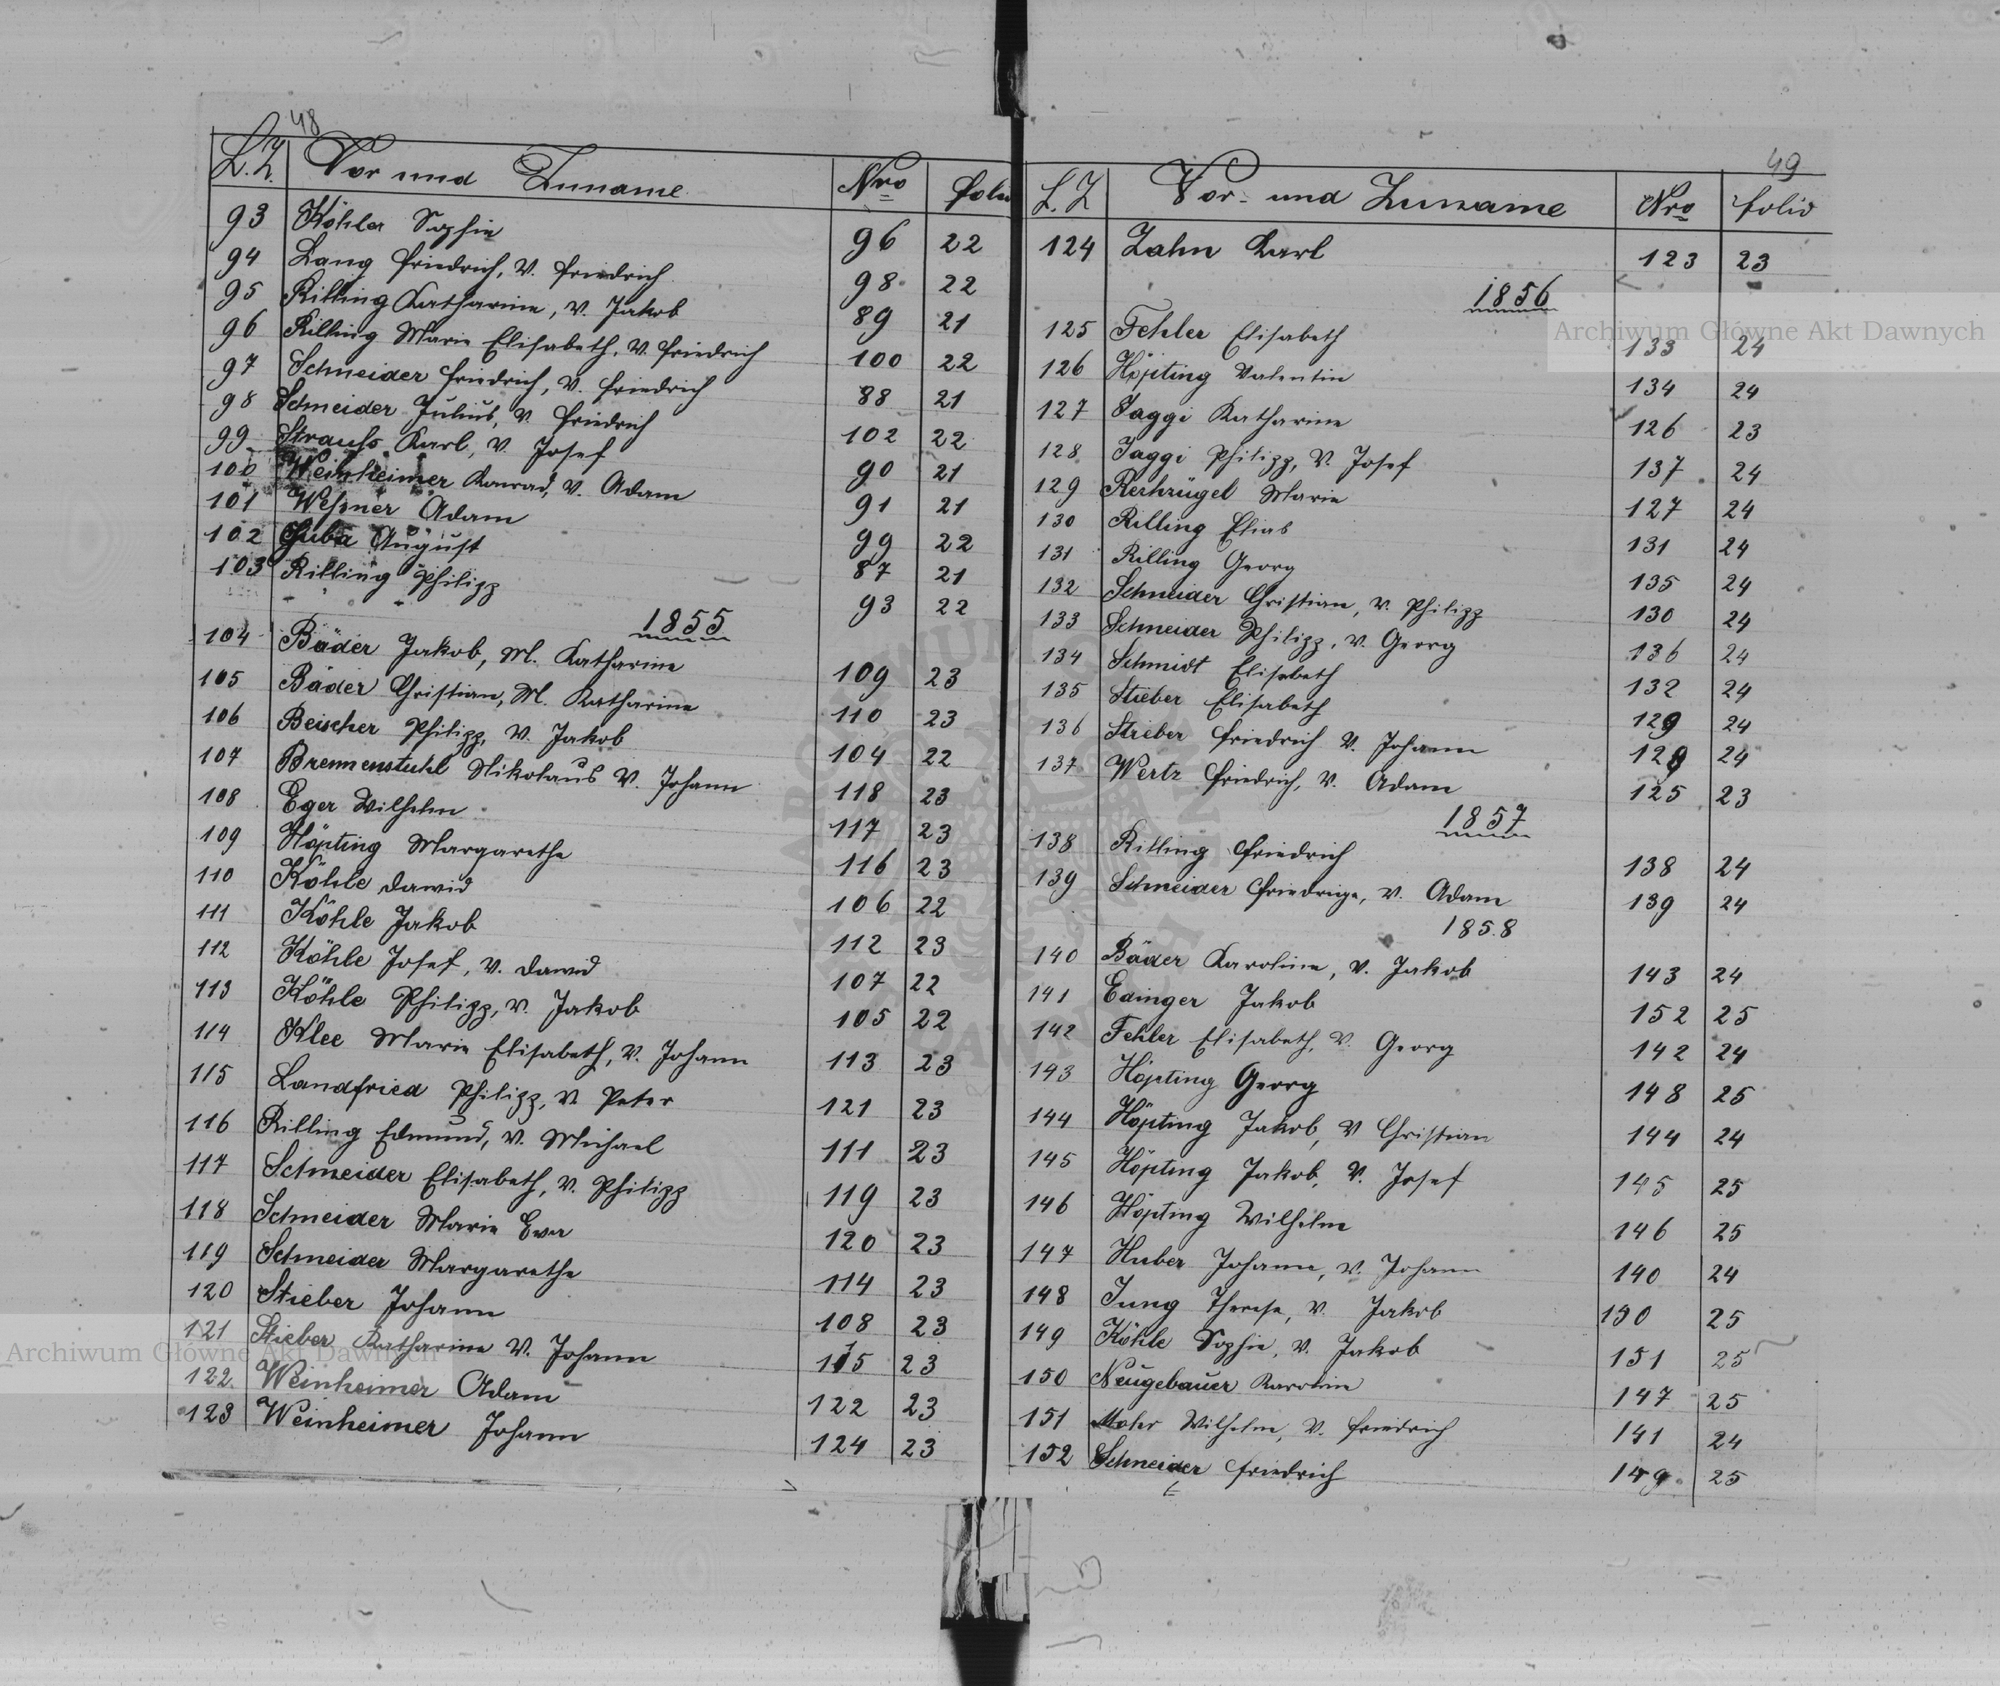 48
L.Z. Vor und Zuname Nro folio
93 Köhler Sophie 96 22
94 Lang Friedrich, V. Friedrich 98 22
95 Rilling Katharine, V. Jakob 89 21
96 Rilling Marie Elisabeth, V. Friedrich 100 22
97 Schneider Friedrich, V. Friedrich 88 21
98 Schneider Julius, V. Friedrich 102 22
99 Strauss Karl, V. Josef 90 21
100 Weinheimer Konrad, V. Adam 91 21
101 Adam 99 22
102 Guba August 87 21
103 Rilling Philipp 93 22
1855
104 Bäder Jakob, M. Katharine 109 23
105 Bäder Christian, M. Katharine 110 23
106 Beischer Philipp, V. Jakob 104 22
107 Brennenstuhl Nikolaus V. Johann 118 23
108 Eger Wilhelm 117 23
109 Höpting Margarethe 116 23
110 Köhle Dawid 106 22
111 Köhle Jakob 112 23
112 Köhle Josef, V. Dawid 107 22
113 Köhle Philipp, V. Jakob 105 22
114 Klee Marie Elisabeth, V. Johann 113 23
115 Landfried Philipp, V. Peter 121 23
116 Rilling Edmund, V. Michael 111 23
117 Schneider Elisabeth, V. Philipp 119 23
118 Schneider Marie Eva 120 23
119 Schneider Margarethe 114 23
120 Stieber Johann 108 23
121 Stieber Katharine V. Johann 115 23
122 Weinheimer Adam 122 23
123 Weinheimer Johann 124 23
49
L.Z Vor- und Zuname Nro folio
124 Zahn Karl 123 23
1856
125 Fehler Elisabeth 133 24
126 Höpting Valentin 134 24
127 Jaggi Katharine 126 23
128 Jaggi Philipp, V. Josef 137 24
129 Rerhrügel Marie 127 24
130 Rilling Elias 131 24
131 Rilling Georg 135 24
132 Schneider Christian, V. Philipp 130 24
133 Schneider Philipp, V. Georg 136 24
134 Schmidt Elisabeth 132 24
135 Stieber Elisabeth 129 24
136 Strieber Friedrich V. Johann 128 24
137 Wertz Friedrich, V. Adam 125 23
1857
138 Rilling Friedrich 138 24
139 Schneider V. Adam 139 24
1858
140 Bäder Karoline, V. Jakob 143 24
141 Edinger Jakob 152 25
142 Fehler Elisabeth, V. Georg 142 24
143 Höpting Georg 148 25
144 Höpting Jakob, V Christian 144 24
145 Höpting Jakob, V. Josef 145 25
146 Höpting Wilhelm 146 25
147 Huber Johann, V. Johann 140 24
148 Jung Therese, V. Jakob 150 25
149 Köhle Sophie, V. Jakob 151 25
150 Neugebauer Karoline 147 25
151 Mohr Wilhelm, V. Friedrich 141 24
152 Schneider Friedrich 149 25
Archiwum Główne Akt Dawnych
Archiwum Główne Akt Dawnych